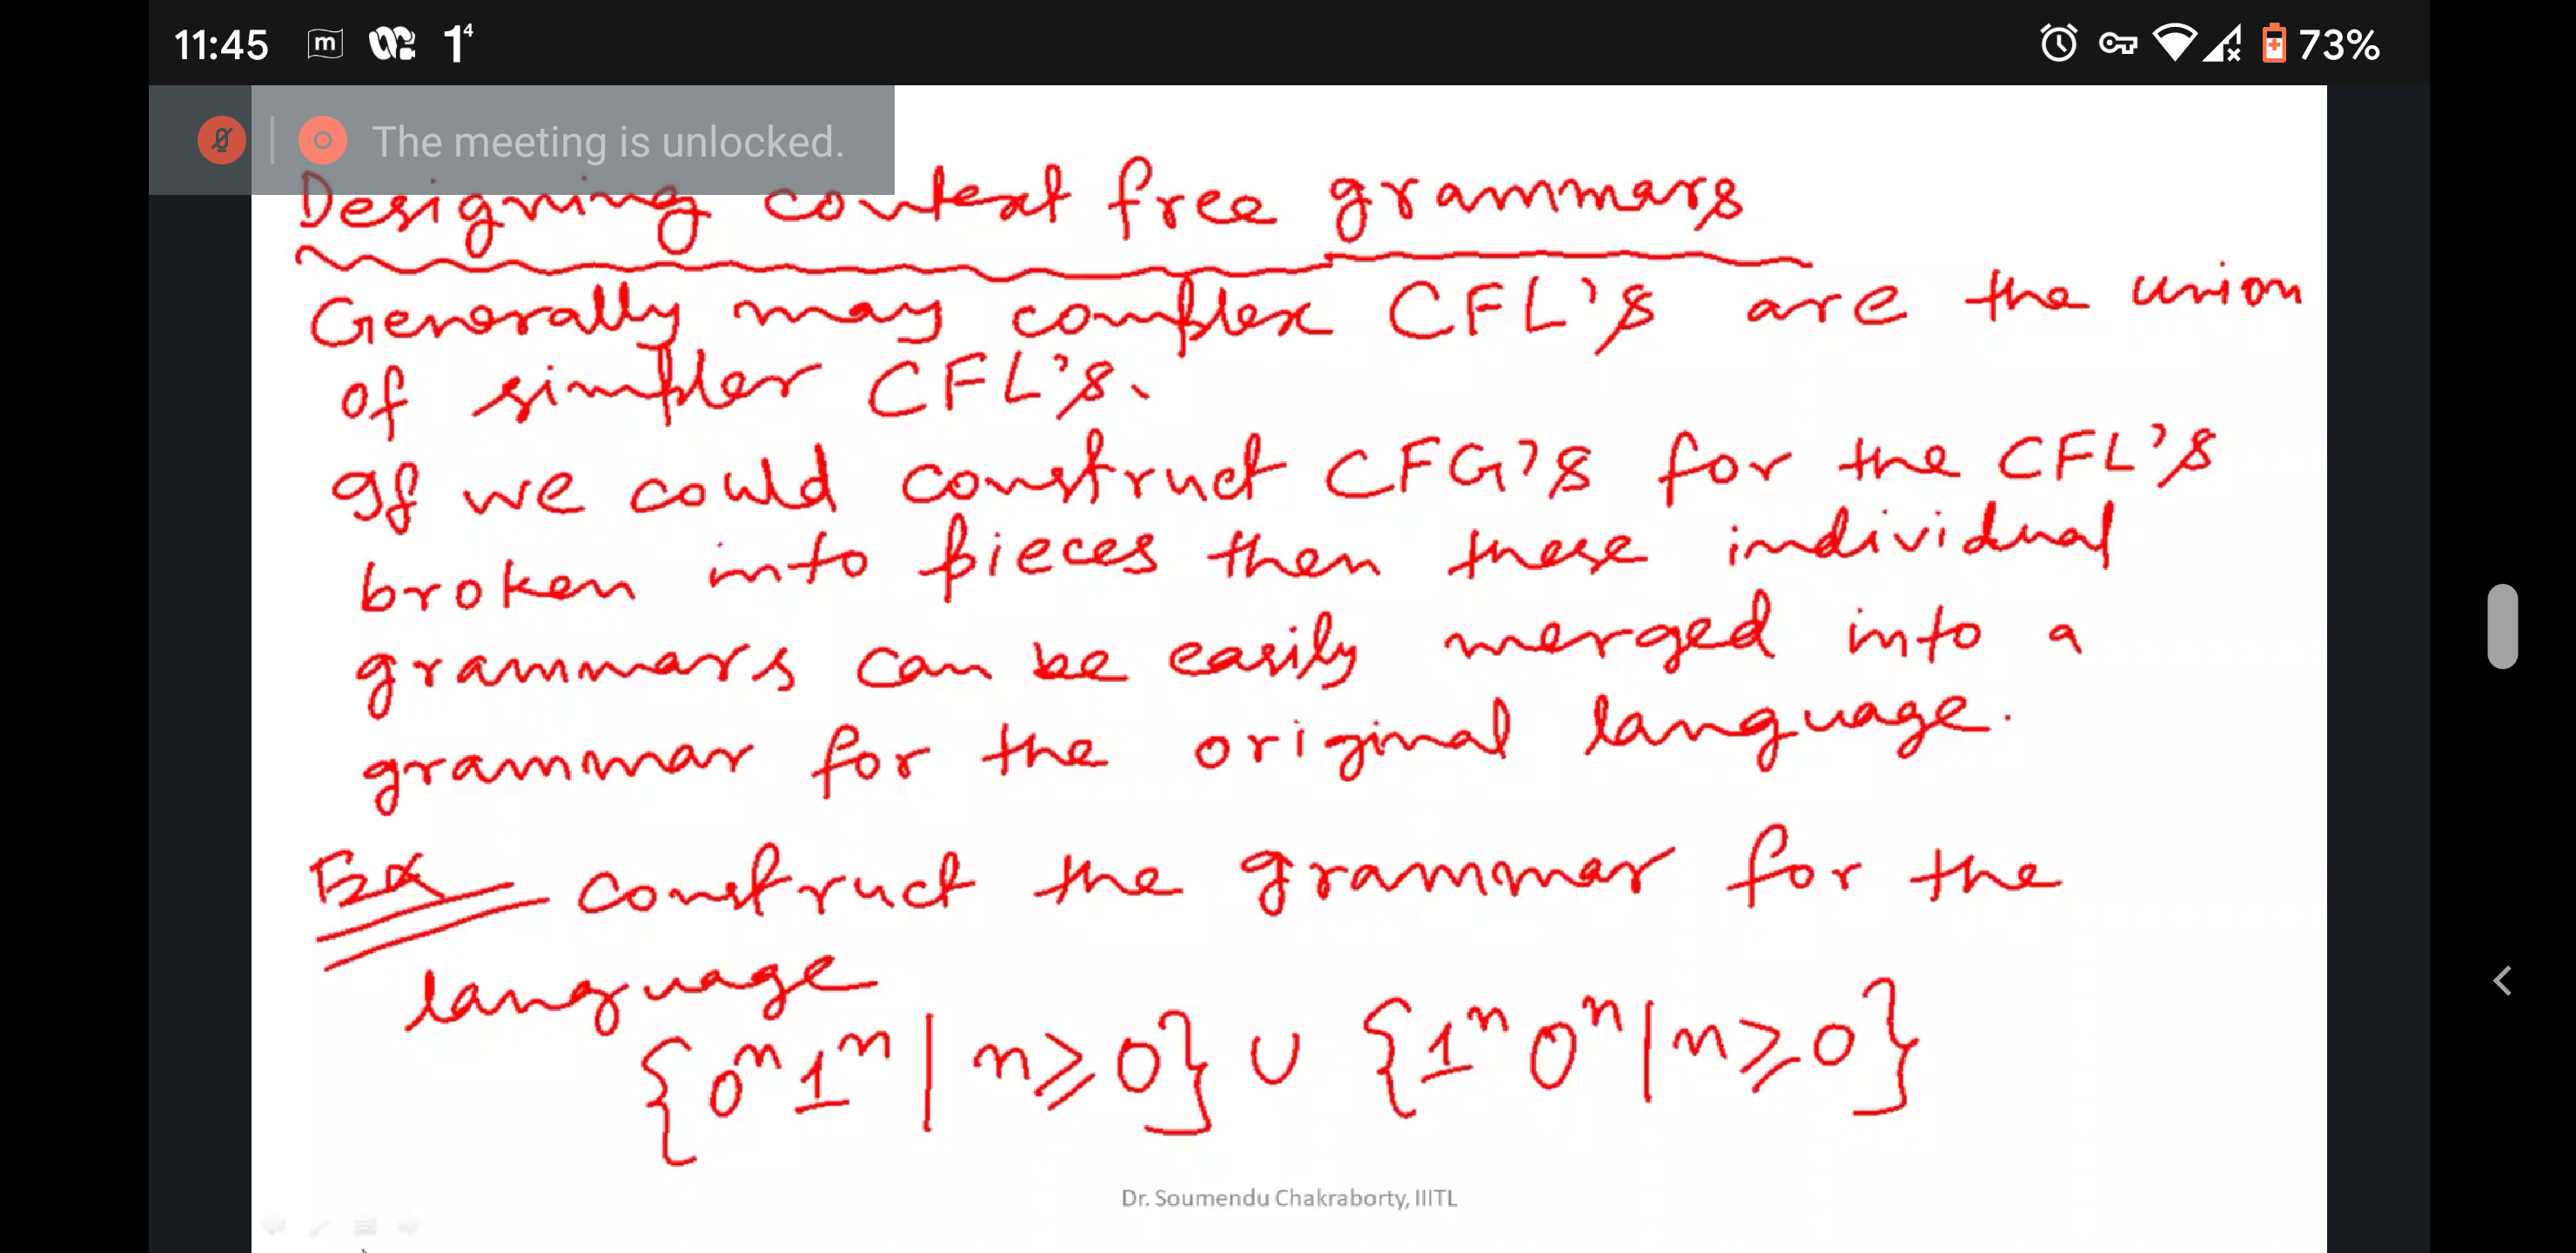 11:45 m 1⁴ 73%
The meeting is unlocked.
Designing context free grammars
Generally may complex CFL's are the union
of simpler CFL's.
If we could construct CFG's for the CFL's
broken into pieces then these individual
grammars can be easily merged into a
grammar for the original language.
Ex construct the grammar for the
language
{0ⁿ1ⁿ | n≥0} ∪ {1ⁿ0ⁿ | n≥0}
Dr. Soumendu Chakraborty, IIITL